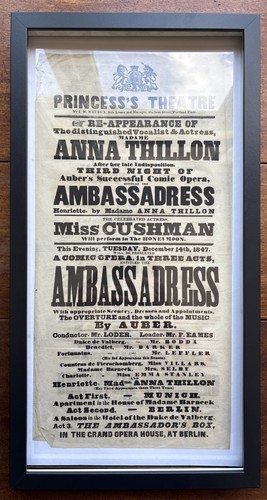 PRINCESS'S THEATRE
RE-APPEARANCE OF
The distinguished Vocalist & Actress,
MADAME
ANNA THILLON
After her late Indisposition.
THIRD NIGHT OF
Auber's Successful Comic Opera,
AMBASSADRESS
Henriette by Madame ANNA THILLON
THE CELEBRATED ACTRESS,
Miss CUSHMAN
Will perform in The HONEYMOON.
This Evening, TUESDAY, December 14th, 1847,
A COMIC OPERA, in THREE ACTS,
AMBASSADRESS
With appropriate Scenery, Dresses and Appointments.
The OVERTURE and the whole of the MUSIC
By AUBER.
Conductor Mr. LODER. Leader Mr. F. EAMES
Duke de Valberg, Mr. BODDA
Benedict, Mr. BARKER
Fortunatus, Mr. LEFFLER
Countess de Fierschemberg, Miss VILLARS,
Madame Barneck, Mrs. SELBY
Charlotte, Miss EMMA STANLEY
AND
Henriette Mad. ANNA THILLON
Act First. MUNICH.
Apartment in the House of Madame Barneck
Act Second. BERLIN.
A Saloon in the Hotel of the Duke de Valberg.
Act 3. THE AMBASSADOR'S BOX,
IN THE GRAND OPERA HOUSE, AT BERLIN.